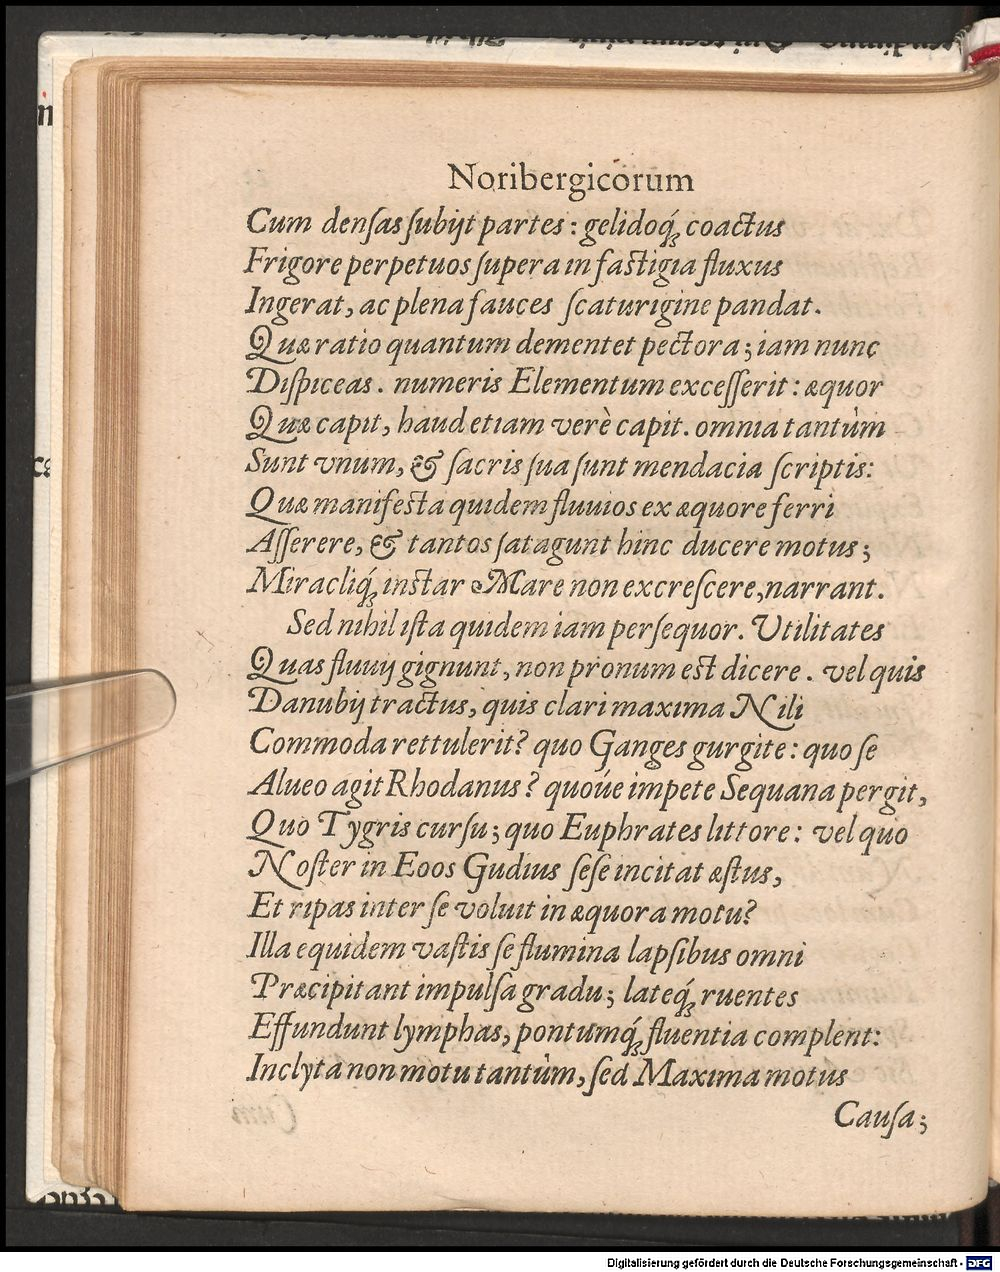 Noribergicorum
Cum denſas ſubijt partes: gelidoq́; coactus
Frigore perpetuos ſupera in faſtigia fluxus
Ingerat, ac plena fauces ſcaturigine pandat.
Quæ ratio quantum dementet pectora; iam nunc
Diſpiceas. numeris Elementum exceſſerit: æquor
Quæ capit, haud etiam verè capit. omnia tantùm
Sunt vnum, & ſacris ſua ſunt mendacia ſcriptis:
Quæ manifeſta quidem fluuios ex æquore ferri
Aſſerere, & tantos ſatagunt hinc ducere motus;
Miracliq́; inſtar Mare non excreſcere, narrant.
Sed nihil iſta quidem iam perſequor. Vtilitates
Quas fluuij gignunt, non pronum eſt dicere. vel quis
Danubij tractus, quis clari maxima Nili
Commoda rettulerit? quo Ganges gurgite: quo ſe
Alueo agit Rhodanus? quoúe impete Sequana pergit,
Quo Tygris curſu; quo Euphrates littore: vel quo
Noſter in Eoos Gudius ſeſe incitat æſtus,
Et ripas inter ſe voluit in æquora motu?
Illa equidem vaſtis ſe flumina lapſibus omni
Præcipitant impulſa gradu; lateq́; ruentes
Effundunt lymphas, pontumq́; fluentia complent:
Inclyta non motu tantùm, ſed Maxima motus
Cauſa;
Digitalisierung gefördert durch die Deutsche Forschungsgemeinschaft - DFG